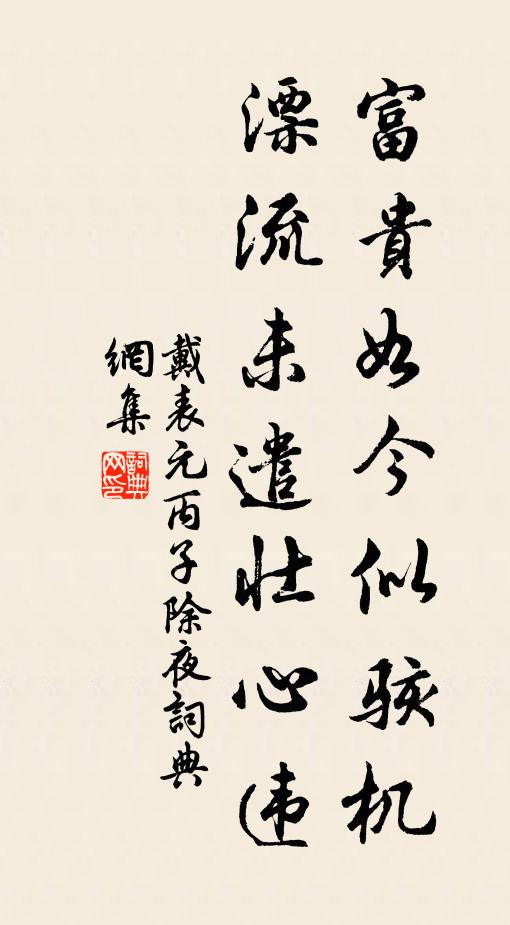 富貴如今似駭机
漂流未遣壮心违
戴表元丙子除夜詞典
網集
詞典网印